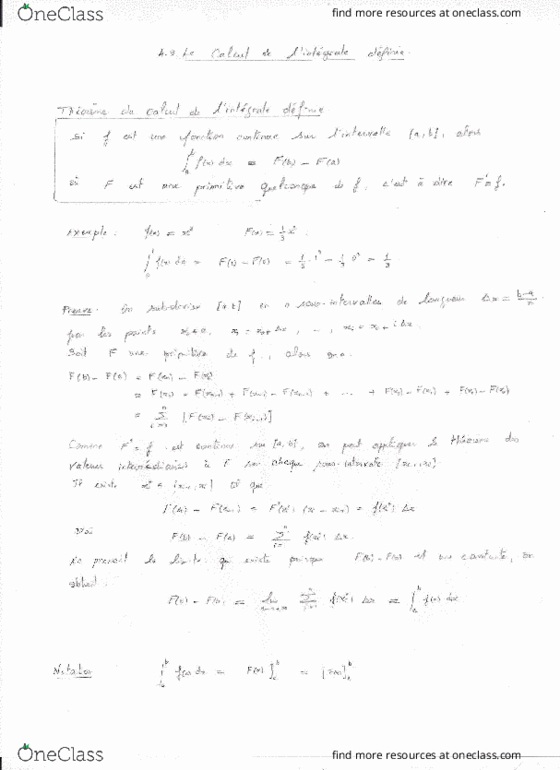 OneClass
find more resources at oneclass.com
4.3. Le Calcul de l'intégrale définie.
Théorème du calcul de l'intégrale définie
Si f est une fonction continue sur l'intervalle [a,b], alors
∫_a^b f(x) dx = F(b) - F(a)
où F est une primitive quelconque de f, c'est à dire F' = f.
Exemple : f(x) = x² F(x) = 1/3 x³
f(x) dx = F(1) - F(0) = 1/3 · 1³ - 1/3 0³ = 1/3
Preuve : On subdivise [a,b] en n sous-intervalles de longueur Δx = (b-a)/n
par les points
Soit F une primitive de f, alors on a
F(b) - F(a) = F(xn) - F(x0)
= F(xn) - F(xn-1) + F(xn-1) - ... + F(x1) - F(x0)
= Σ [F(xi) - F(xi-1)]
Comme F' = f est continue sur [a,b], on peut appliquer le théorème des
valeurs intermédiaires à F sur chaque sous-intervalle [xi-1, xi]
Il existe tel que
= f(xi*) Δx
F(b) - F(a) = Σ f(xi*) Δx.
prenant la limite qui existe puisque F(b) - F(a) est une constante, on
obtient :
F(b) - F(a) = lim Σ f(xi*) Δx = ∫_a^b f(x) dx
Notation ∫_a^b f(x) dx = F(x)]_a^b = [F(x)]_a^b
OneClass
find more resources at oneclass.com